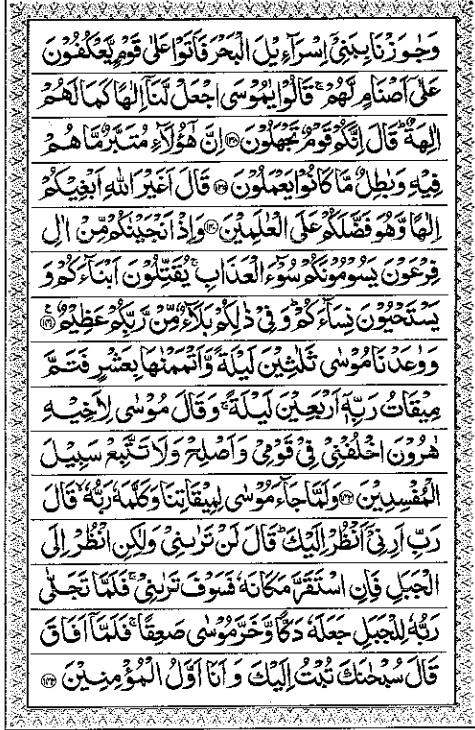 وَجٰوَزْنَا بِبَنِیْۤ اِسْرَآءِیْلَ الْبَحْرَ فَاَتَوْا عَلٰی قَوْمٍ یَّعْكُفُوْنَ
عَلٰۤی اَصْنَامٍ لَّهُمْ ۚ قَالُوْا یٰمُوْسَی اجْعَلْ لَّنَاۤ اِلٰهًا كَمَا لَهُمْ
اٰلِهَةٌ ؕ قَالَ اِنَّكُمْ قَوْمٌ تَجْهَلُوْنَ ۝۱۳۸ اِنَّ هٰۤؤُلَآءِ مُتَبَّرٌ مَّا هُمْ
فِیْهِ وَبٰطِلٌ مَّا كَانُوْا یَعْمَلُوْنَ ۝۱۳۹ قَالَ اَغَیْرَ اللّٰهِ اَبْغِیْكُمْ
اِلٰهًا وَّهُوَ فَضَّلَكُمْ عَلَی الْعٰلَمِیْنَ ۝۱۴۰ وَاِذْ اَنْجَیْنٰكُمْ مِّنْ اٰلِ
فِرْعَوْنَ یَسُوْمُوْنَكُمْ سُوْٓءَ الْعَذَابِ ۚ یُقَتِّلُوْنَ اَبْنَآءَكُمْ وَ
یَسْتَحْیُوْنَ نِسَآءَكُمْ ؕ وَفِیْ ذٰلِكُمْ بَلَآءٌ مِّنْ رَّبِّكُمْ عَظِیْمٌ ۝۱۴۱
وَوٰعَدْنَا مُوْسٰی ثَلٰثِیْنَ لَیْلَةً وَّاَتْمَمْنٰهَا بِعَشْرٍ فَتَمَّ
مِیْقَاتُ رَبِّهٖۤ اَرْبَعِیْنَ لَیْلَةً ۚ وَقَالَ مُوْسٰی لِاَخِیْهِ
هٰرُوْنَ اخْلُفْنِیْ فِیْ قَوْمِیْ وَاَصْلِحْ وَلَا تَتَّبِعْ سَبِیْلَ
الْمُفْسِدِیْنَ ۝۱۴۲ وَلَمَّا جَآءَ مُوْسٰی لِمِیْقَاتِنَا وَكَلَّمَهٗ رَبُّهٗ ۙ قَالَ
رَبِّ اَرِنِیْۤ اَنْظُرْ اِلَیْكَ ؕ قَالَ لَنْ تَرٰىنِیْ وَلٰكِنِ انْظُرْ اِلَی
الْجَبَلِ فَاِنِ اسْتَقَرَّ مَكَانَهٗ فَسَوْفَ تَرٰىنِیْ ۚ فَلَمَّا تَجَلّٰی
رَبُّهٗ لِلْجَبَلِ جَعَلَهٗ دَكًّا وَّخَرَّ مُوْسٰی صَعِقًا ۚ فَلَمَّاۤ اَفَاقَ
قَالَ سُبْحٰنَكَ تُبْتُ اِلَیْكَ وَاَنَا اَوَّلُ الْمُؤْمِنِیْنَ ۝۱۴۳